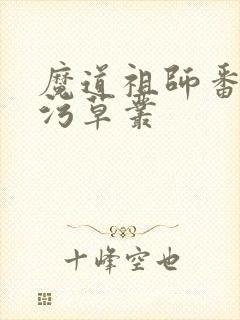 魔道祖师番
污草丛
十峰空也